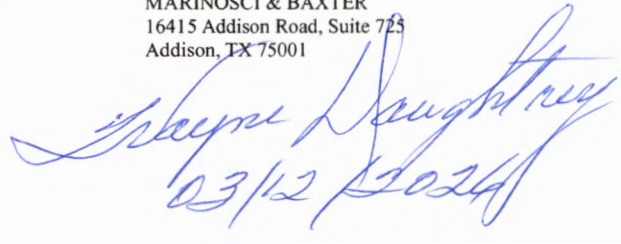 MARINOSCI & BAXTER
16415 Addison Road, Suite 725
Addison, TX 75001
Wayne Daughtrey
03/12/2024